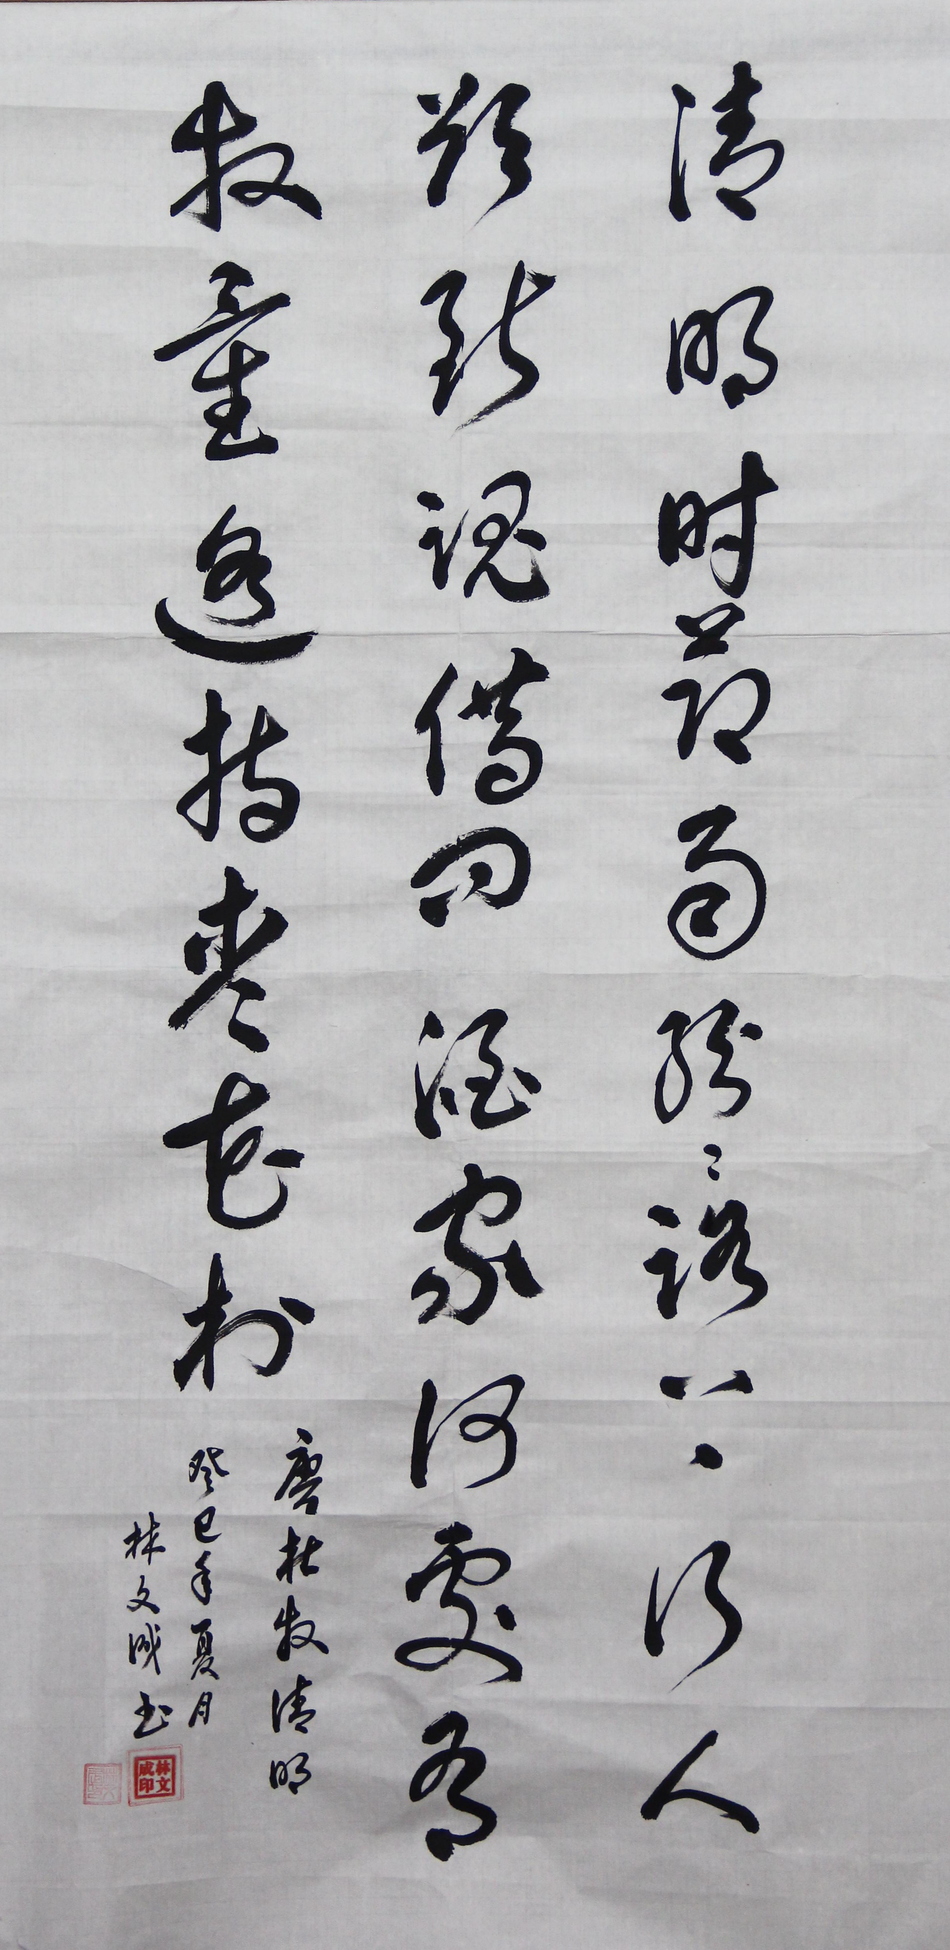 清明时节雨纷々路上行人
欲断魂借问酒家何處有
牧童遥指杏花村
唐杜牧清明
癸巳年夏月
林文成书
林文成印